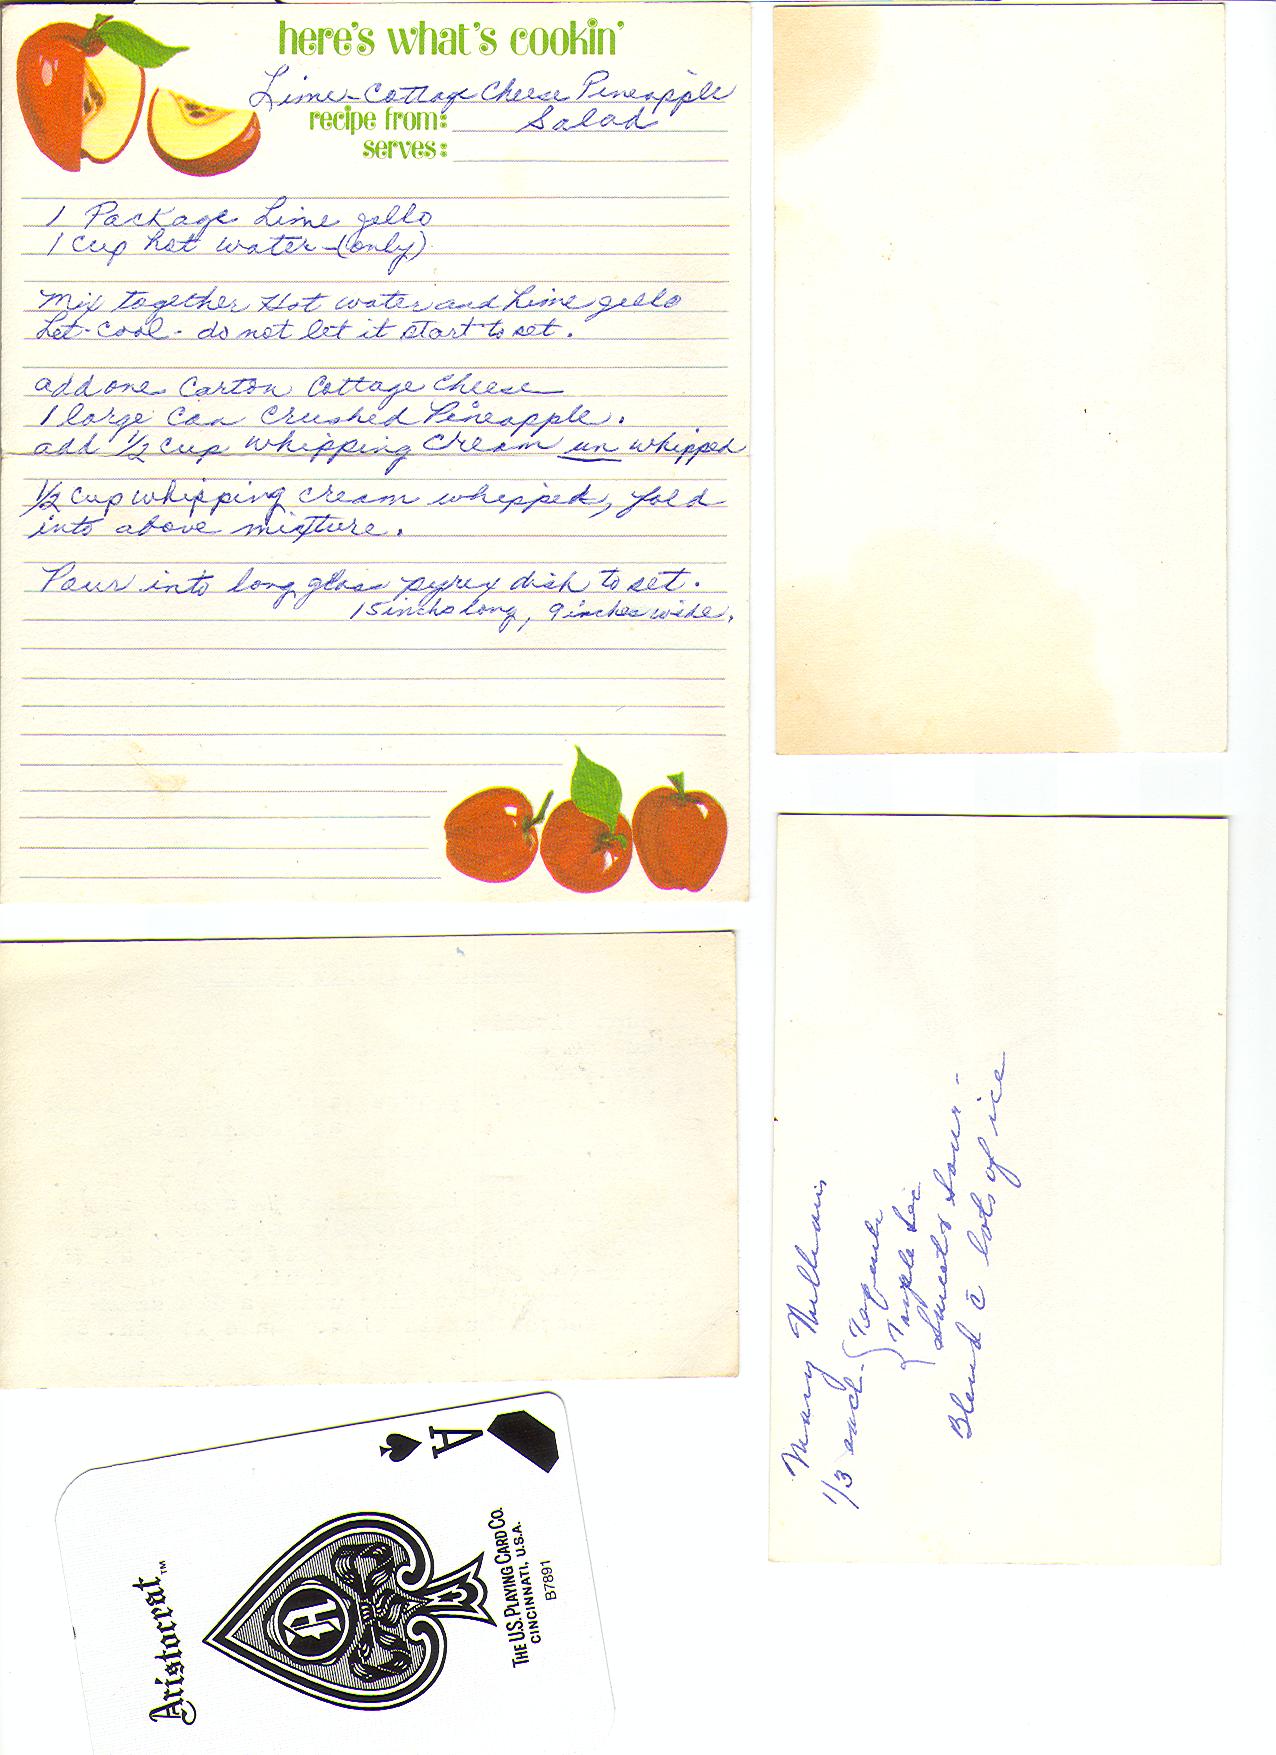 here's what's cookin'
Lime-Cottage Cheese Pineapple
recipe from: Salad
serves:
1 Package Lime jello
1 cup hot water-(only)
Mix together Hot water and Lime jello
Let-cool- do not let it start to set.
add one Carton Cottage Cheese
1 large Can Crushed Pineapple.
add 1/2 cup whipping Cream un whipped
1/2 cup whipping cream whipped, fold
into above mixture.
Pour into long glass pyrex dish to set.
15 inchs long, 9 inches wide.
Mary
1/3 each - { Taquila
Triple Sec
Sweet & Sour -
Blend c̄ lots of ice
A
Aristocrat™
A
THE U.S. PLAYING CARD CO.
CINCINNATI, U.S.A.
B7891